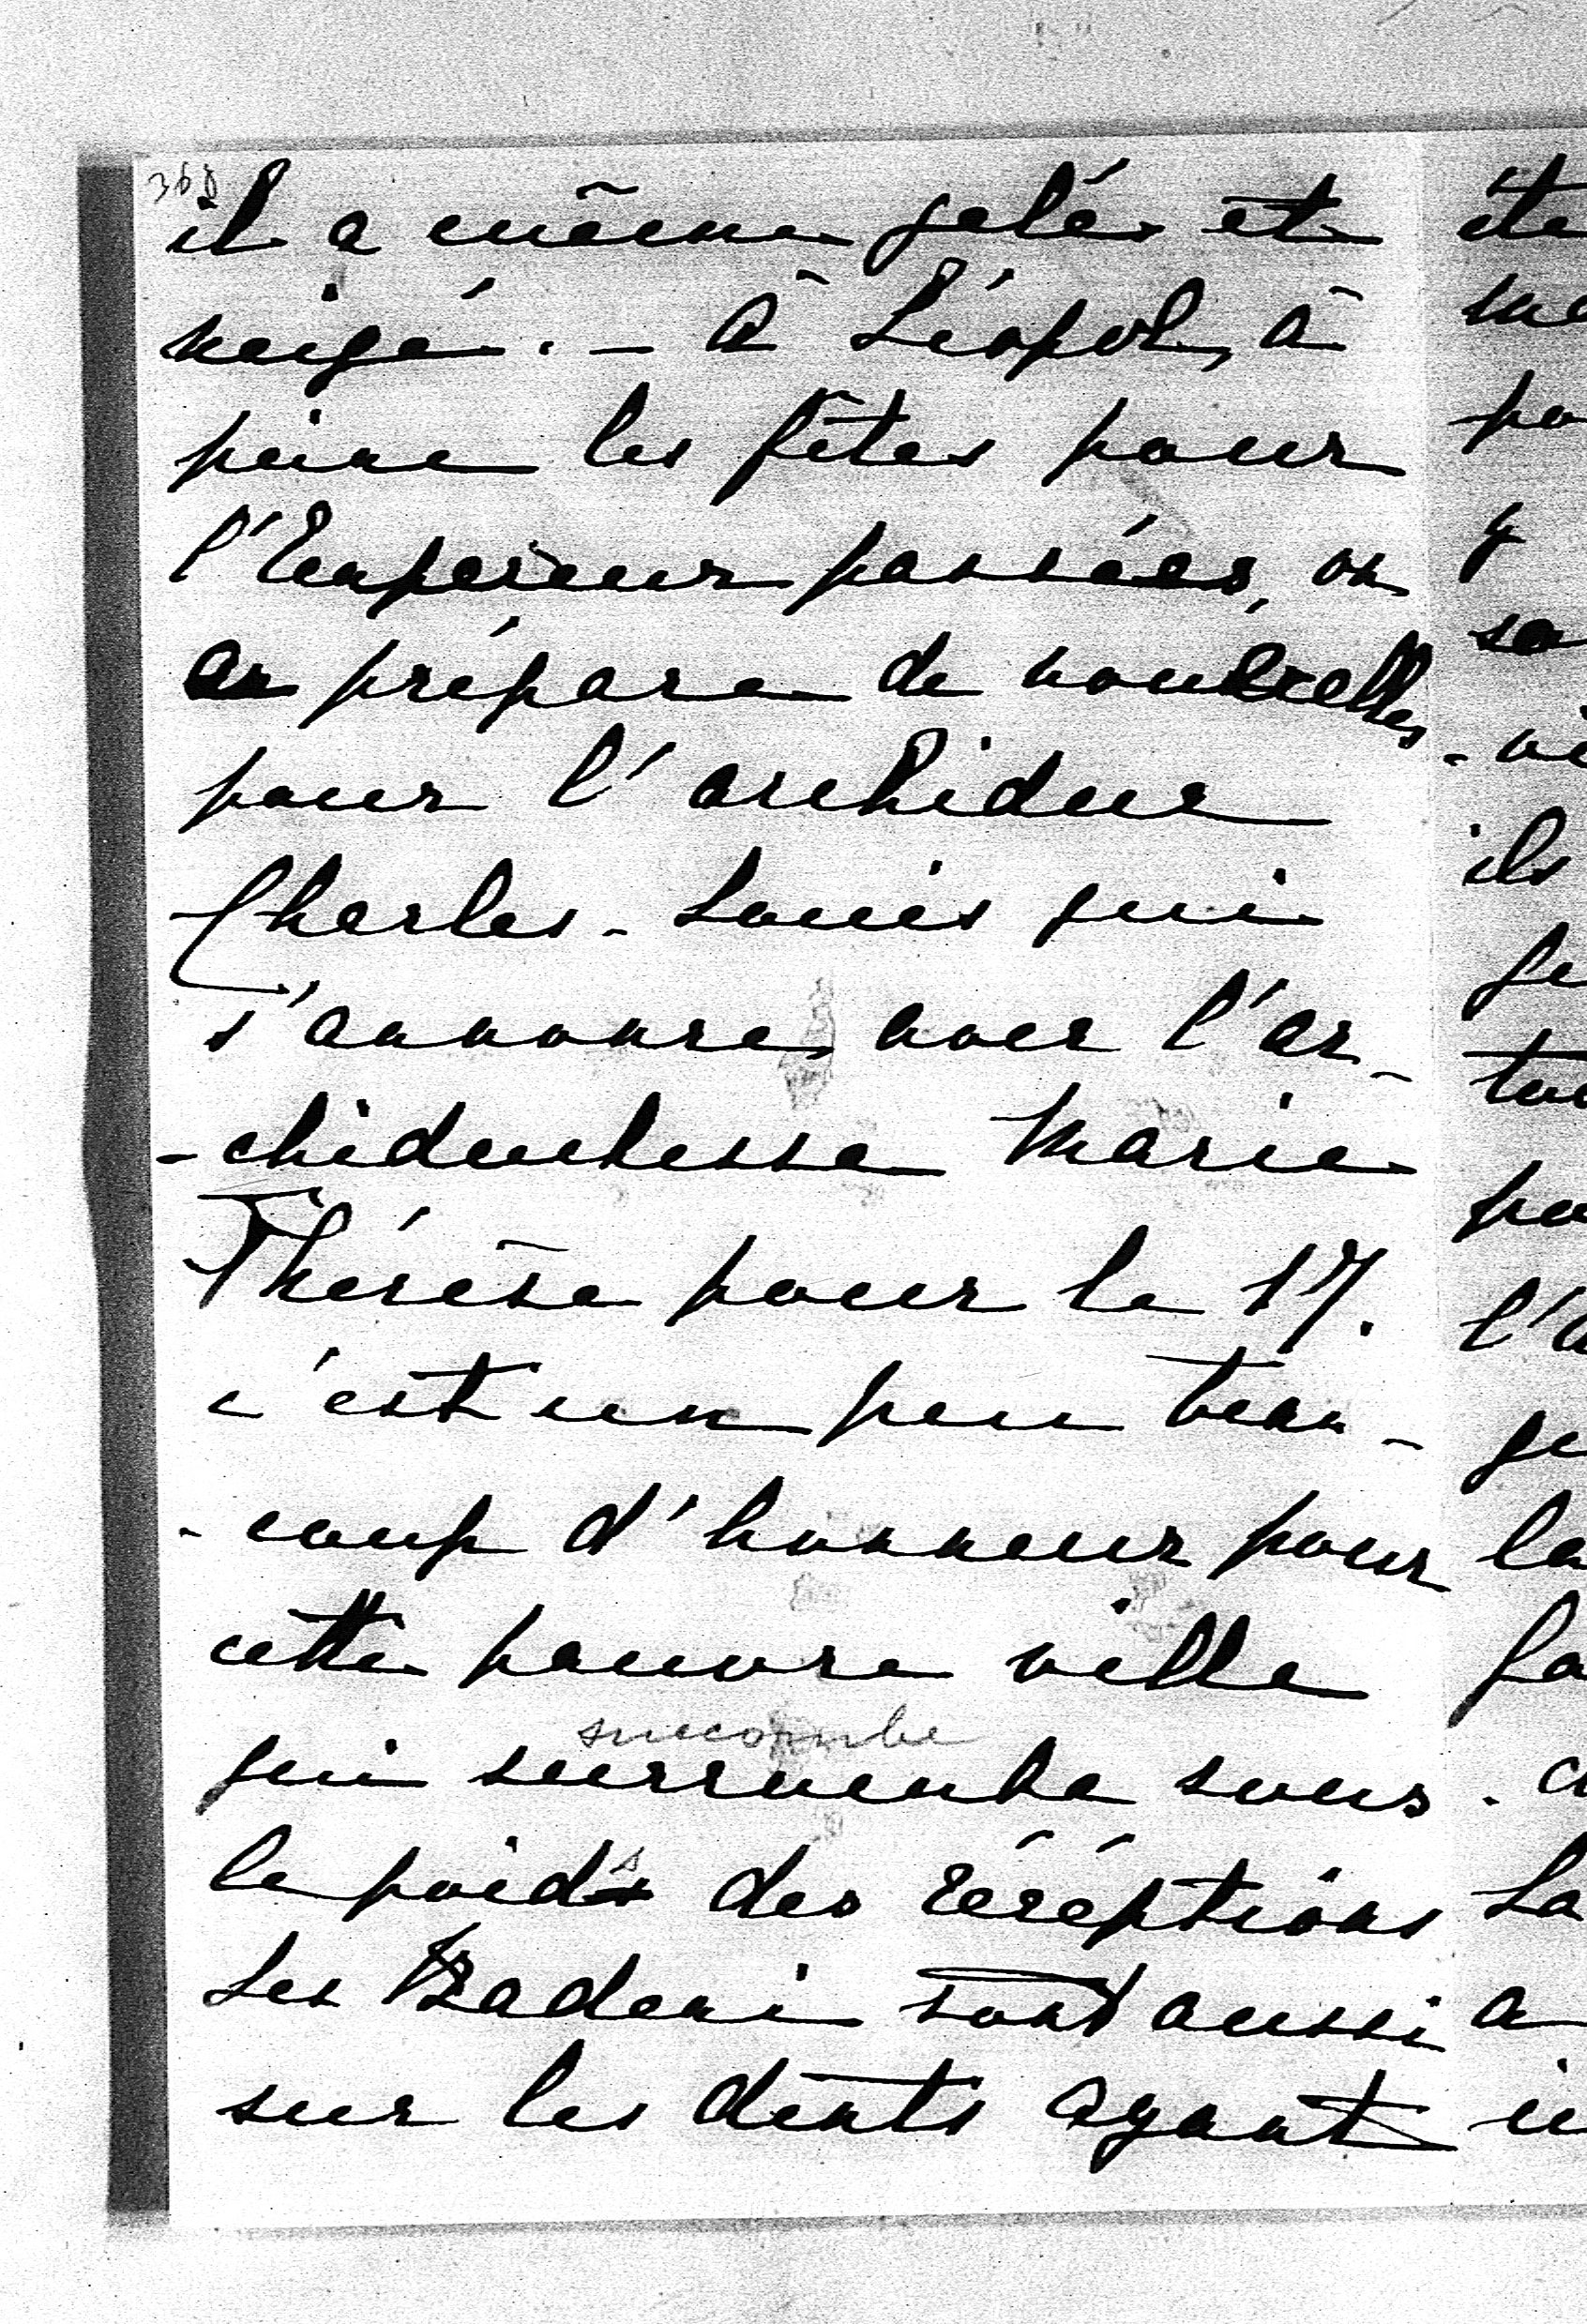 368
il a même gelé et
neigé. – à Léopol, à
peine les fêtes pour
l'Empereur passées, on
en prépare de nouvelles
pour l'archiduc
Charles-Louis qui
s'annonce avec l'ar-
-chiduchesse Marie
Thérèse pour le 17.
c'est un peu beau-
-coup d'honneur pour
cette pauvre ville
succombe
qui succombe sous
le poids des réceptions
Les Badeni sont aussi
sur les dents ayant